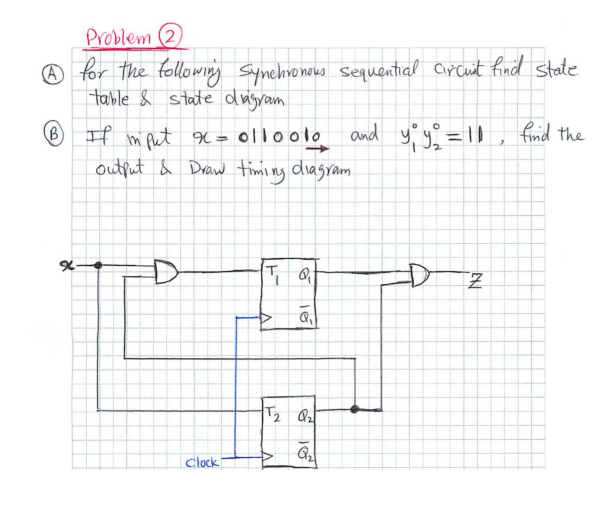 Problem ②
Ⓐ for the following synchronous sequential circuit find state
table & state diagram
Ⓑ If input x = 0110010 and y₁⁰y₂⁰ = 11 , find the
output & Draw timing diagram
x
T₁ Q₁
Z
Q̅₁
T₂ Q₂
Q̅₂
Clock